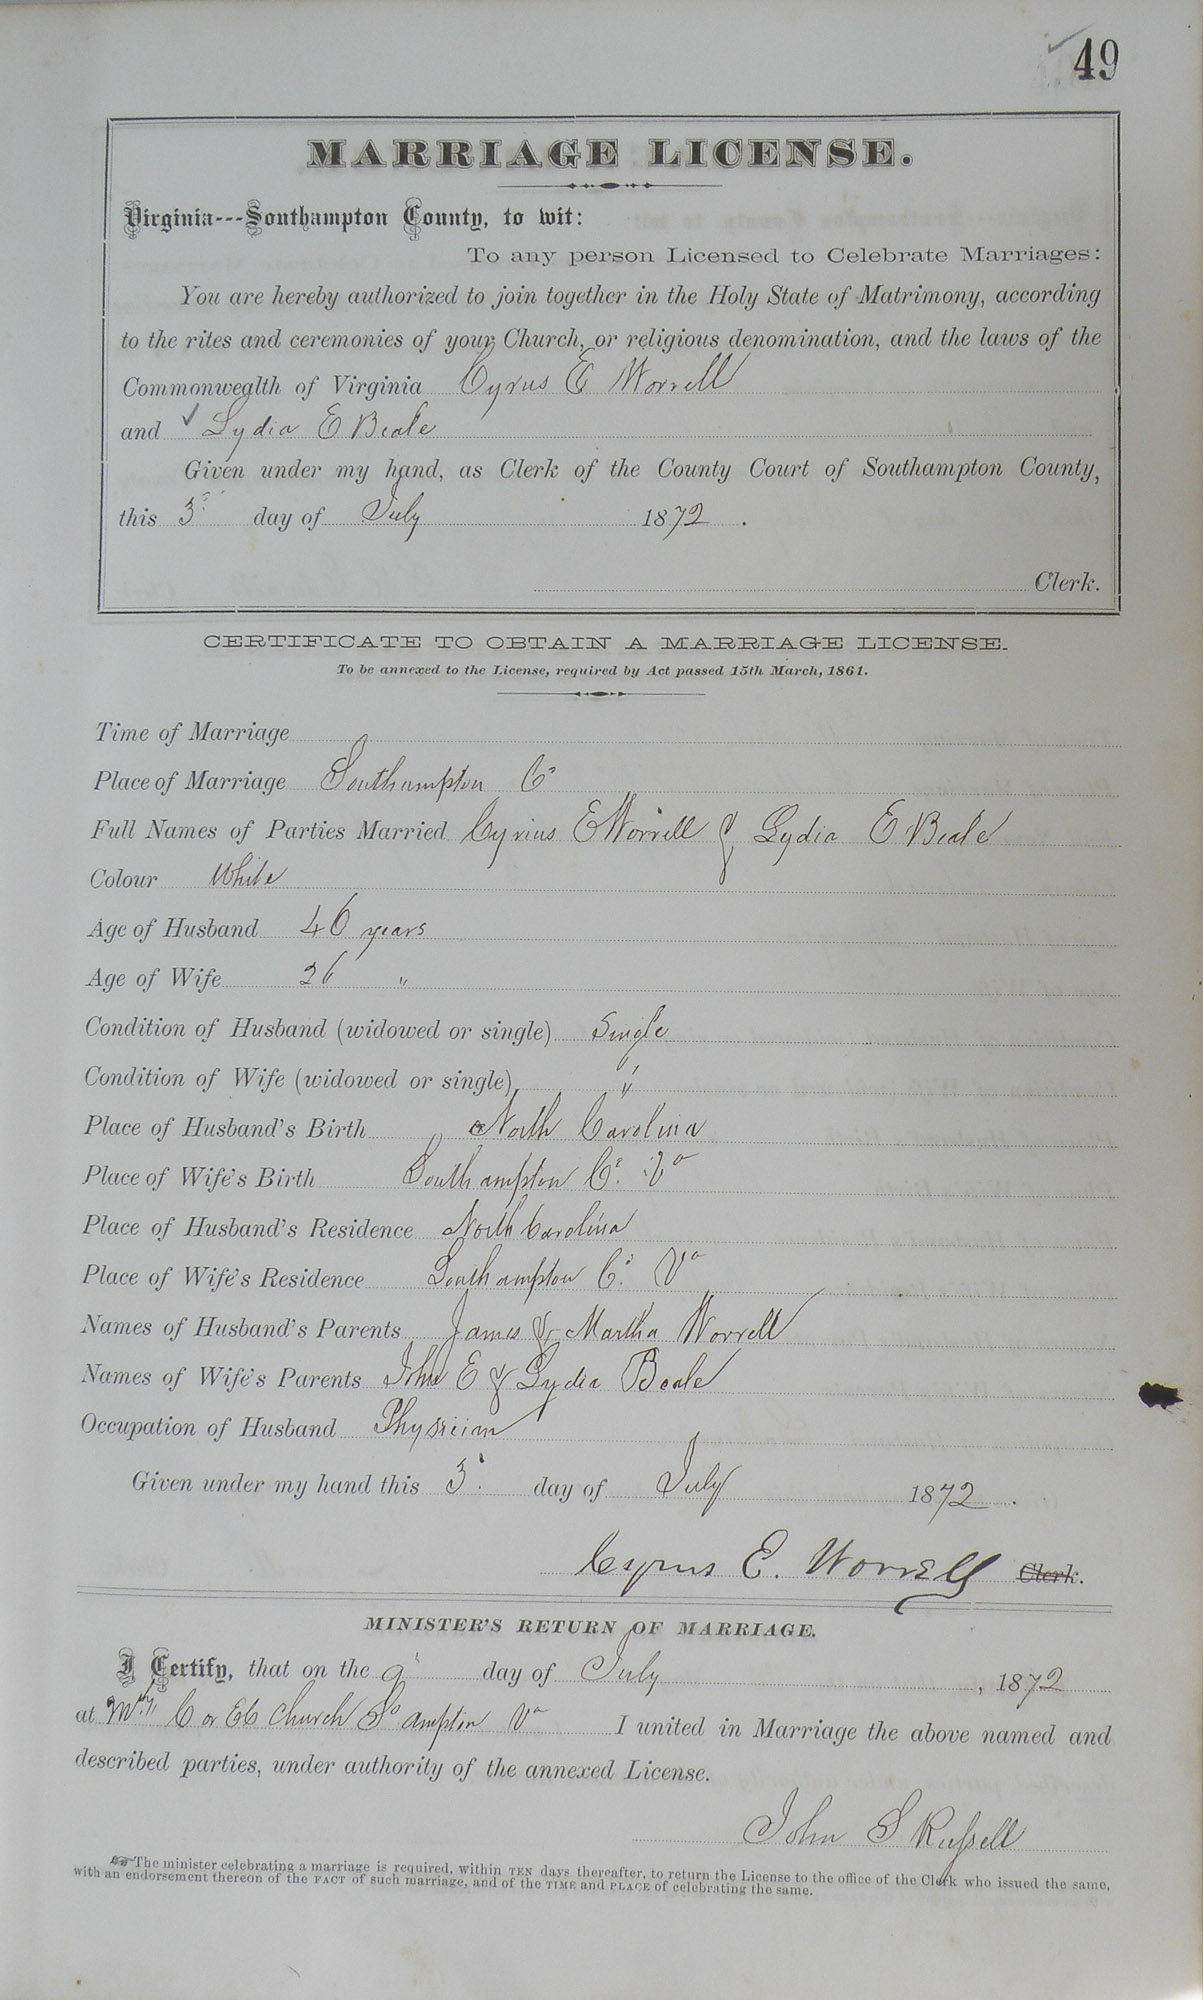 49
MARRIAGE LICENSE.
Virginia---Southampton County, to wit:
To any person Licensed to Celebrate Marriages:
You are hereby authorized to join together in the Holy State of Matrimony, according
to the rites and ceremonies of your Church, or religious denomination, and the laws of the
Commonwealth of Virginia Cyrus E Worrell
and Lydia E Beale
Given under my hand, as Clerk of the County Court of Southampton County,
this 3d day of July 1872.
Clerk.
CERTIFICATE TO OBTAIN A MARRIAGE LICENSE.
To be annexed to the License, required by Act passed 15th March, 1861.
Time of Marriage
Place of Marriage Southampton Co
Full Names of Parties Married Cyrius E Worrell & Lydia E Beale
Colour White
Age of Husband 46 years
Age of Wife 26 "
Condition of Husband (widowed or single) Single
Condition of Wife (widowed or single), "
Place of Husband's Birth North Carolina
Place of Wife's Birth Southampton Co. Va
Place of Husband's Residence North Carolina
Place of Wife's Residence Southampton Co. Va
Names of Husband's Parents James & Martha Worrell
Names of Wife's Parents John E & Lydia Beale
Occupation of Husband Physician
Given under my hand this 3d. day of July 1872.
Cyrus E. Worrell Clerk.
MINISTER'S RETURN OF MARRIAGE.
I Certify, that on the 9th day of July, 1872
at Church So ampton Va I united in Marriage the above named and
described parties, under authority of the annexed License.
John S Russell
The minister celebrating a marriage is required, within TEN days thereafter, to return the License to the office of the Clerk who issued the same,
with an endorsement thereon of the FACT of such marriage, and of the TIME and PLACE of celebrating the same.